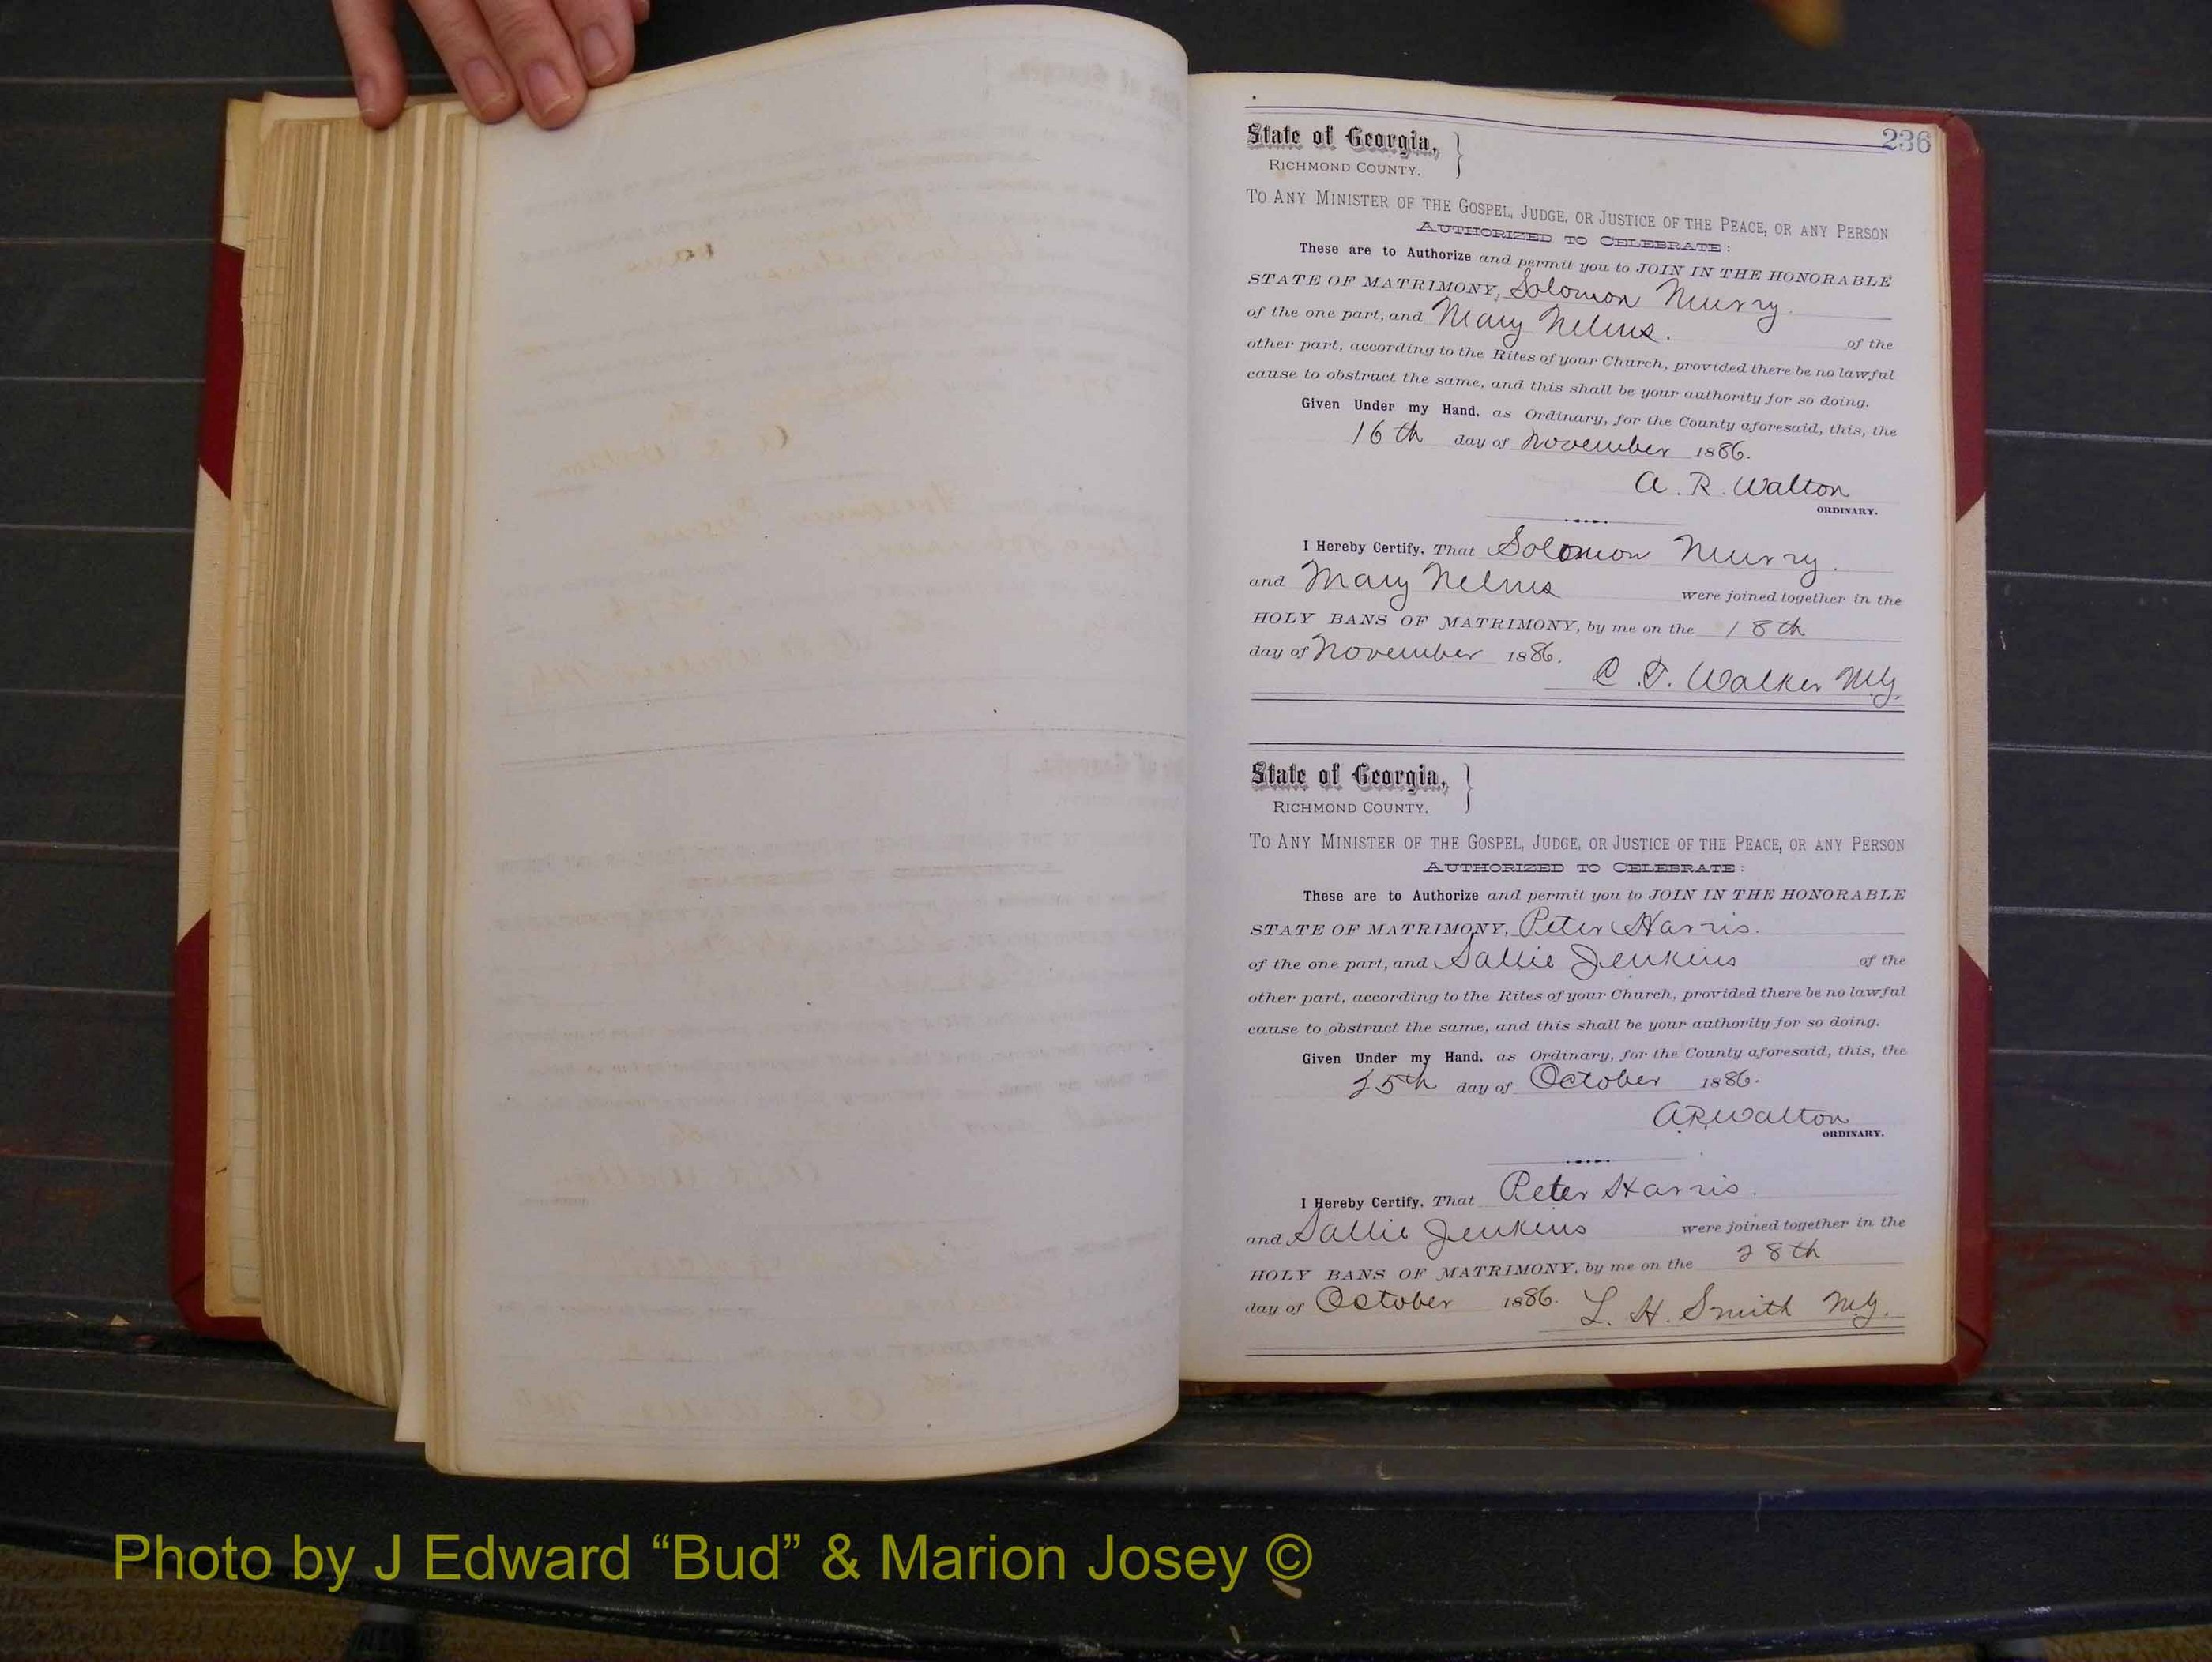 236
State of Georgia,
RICHMOND COUNTY.
TO ANY MINISTER OF THE GOSPEL, JUDGE, OR JUSTICE OF THE PEACE, OR ANY PERSON
AUTHORIZED TO CELEBRATE:
These are to Authorize and permit you to JOIN IN THE HONORABLE
STATE OF MATRIMONY, Solomon Murry.
of the one part, and Mary Nelms. of the
other part, according to the Rites of your Church, provided there be no lawful
cause to obstruct the same, and this shall be your authority for so doing.
Given Under my Hand, as Ordinary, for the County aforesaid, this, the
16th day of November 1886.
A. R. Walton
ORDINARY.
I Hereby Certify, That Solomon Murry.
and Mary Nelms were joined together in the
HOLY BANS OF MATRIMONY, by me on the 18th
day of November 1886.
C. T. Walker M.G.
State of Georgia,
RICHMOND COUNTY.
TO ANY MINISTER OF THE GOSPEL, JUDGE, OR JUSTICE OF THE PEACE, OR ANY PERSON
AUTHORIZED TO CELEBRATE:
These are to Authorize and permit you to JOIN IN THE HONORABLE
STATE OF MATRIMONY, Peter Harris.
of the one part, and Sallie Jenkins of the
other part, according to the Rites of your Church, provided there be no lawful
cause to obstruct the same, and this shall be your authority for so doing.
Given Under my Hand, as Ordinary, for the County aforesaid, this, the
25th day of October 1886.
A.R. Walton
ORDINARY.
I Hereby Certify, That Peter Harris.
and Sallie Jenkins were joined together in the
HOLY BANS OF MATRIMONY, by me on the 28th
day of October 1886. L. H. Smith M.G.
Photo by J Edward “Bud” & Marion Josey ©